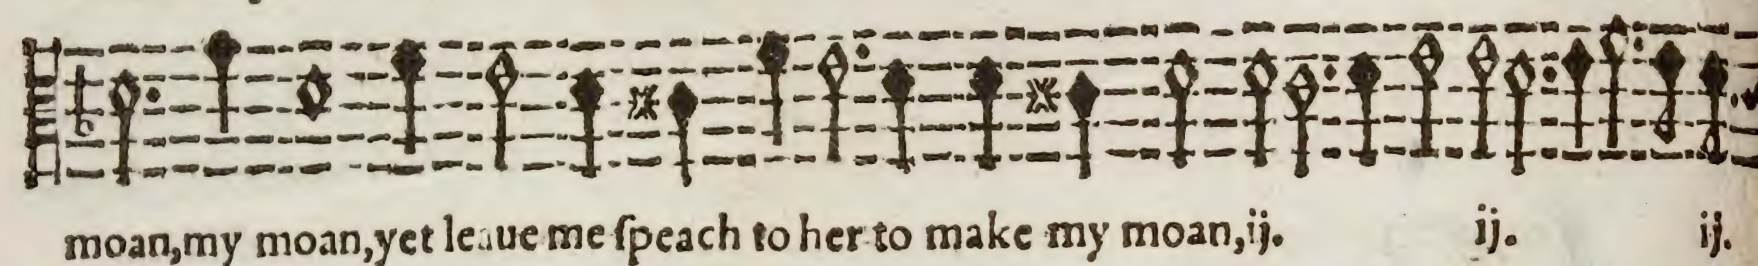 moan,my moan,yet leaue me ſpeach to her to make my moan,ij. ij. ij.